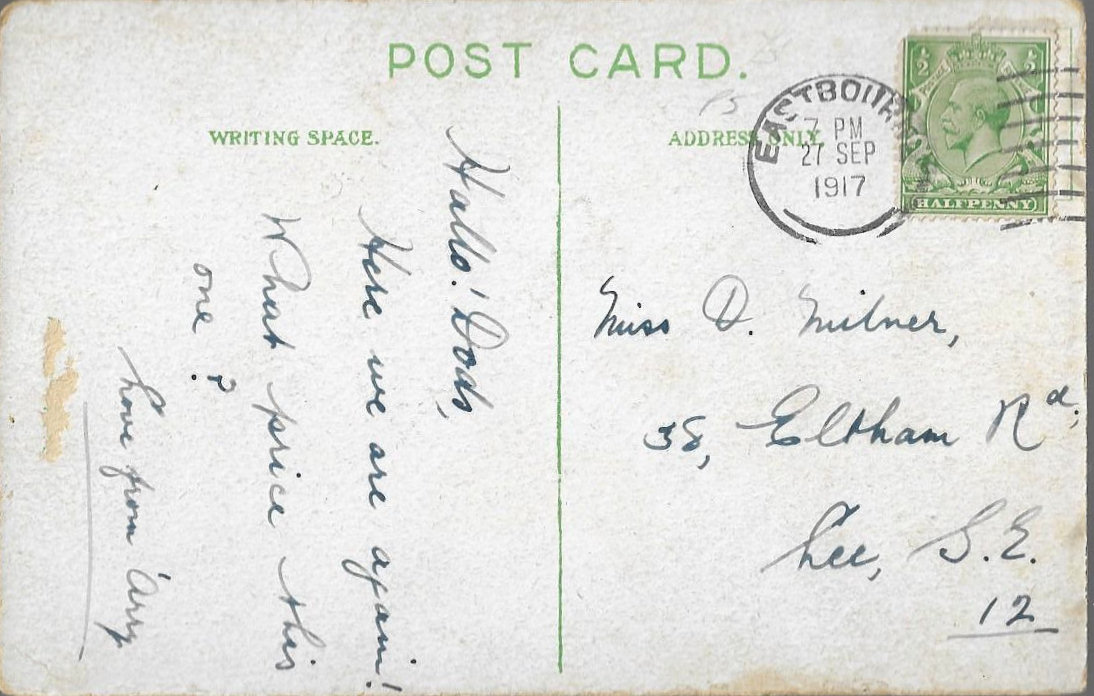 POST CARD.
WRITING SPACE.
Hallo! Dods,
Here we are again!
What price this
one?
Love from 'Arry
ADDRESS ONLY.
EASTBOURNE
7 PM
27 SEP
1917
½ ½
POSTAGE
HALFPENNY
Miss D. Milner,
38, Eltham Rd,
Lee, S.E.
12